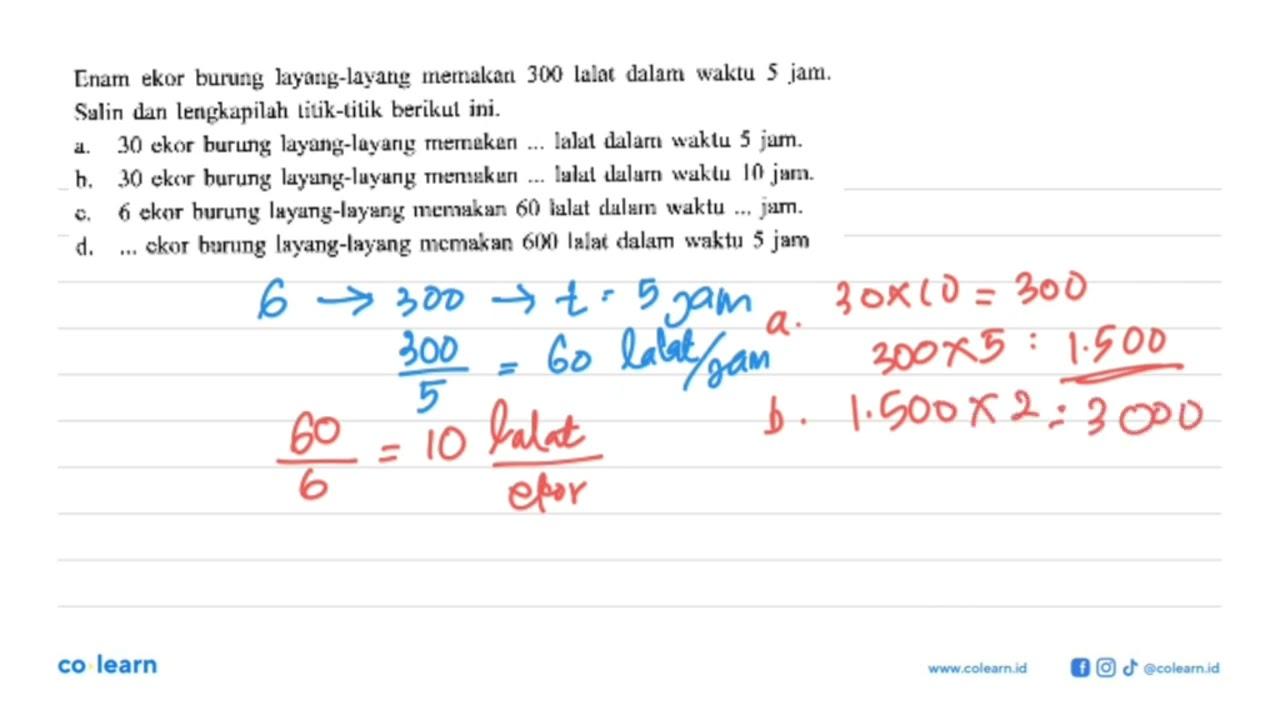 Enam ekor burung layang-layang memakan 300 lalat dalam waktu 5 jam.
Salin dan lengkapilah titik-titik berikut ini.
a. 30 ekor burung layang-layang memakan ... lalat dalam waktu 5 jam.
b. 30 ekor burung layang-layang memakan ... lalat dalam waktu 10 jam.
c. 6 ekor burung layang-layang memakan 60 lalat dalam waktu ... jam.
d. ... ekor burung layang-layang memakan 600 lalat dalam waktu 5 jam
6 → 300 → t = 5 jam
300/5 = 60 lalat/jam
60/6 = 10 lalat/ekor
a. 30 × 10 = 300
300 × 5 = 1.500
b. 1.500 × 2 = 3000
co learn
www.colearn.id
@colearn.id